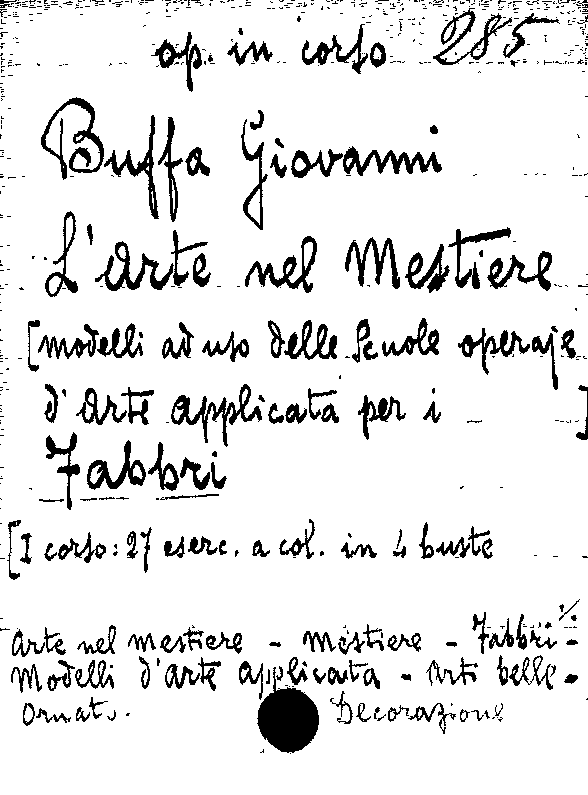 op. in corso 285
Buffa Giovanni
L'Arte nel Mestiere
[modelli ad uso delle Scuole operaje
d'Arte applicata per i ]
Fabbri
[I corso: 27 eserc. a col. in 4 buste
Arte nel mestiere - Mestiere - Fabbri -
Modelli d'arte applicata - Arti belle -
Ornato. Decorazione